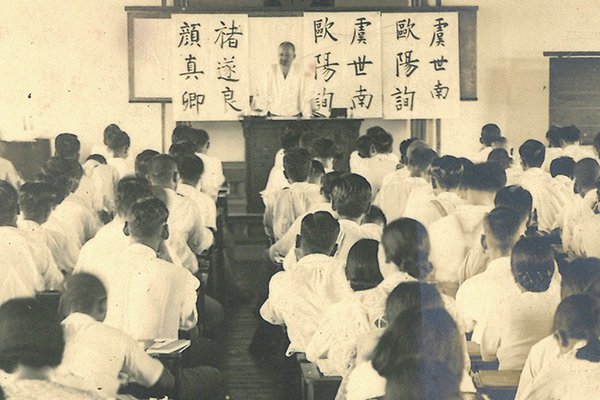 虞世南
歐陽詢
虞世南
歐陽詢
褚遂良
顔真卿